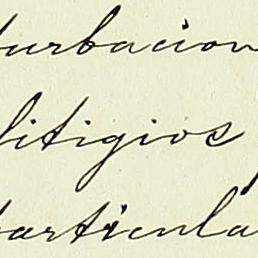 turbacion
litigios
particula